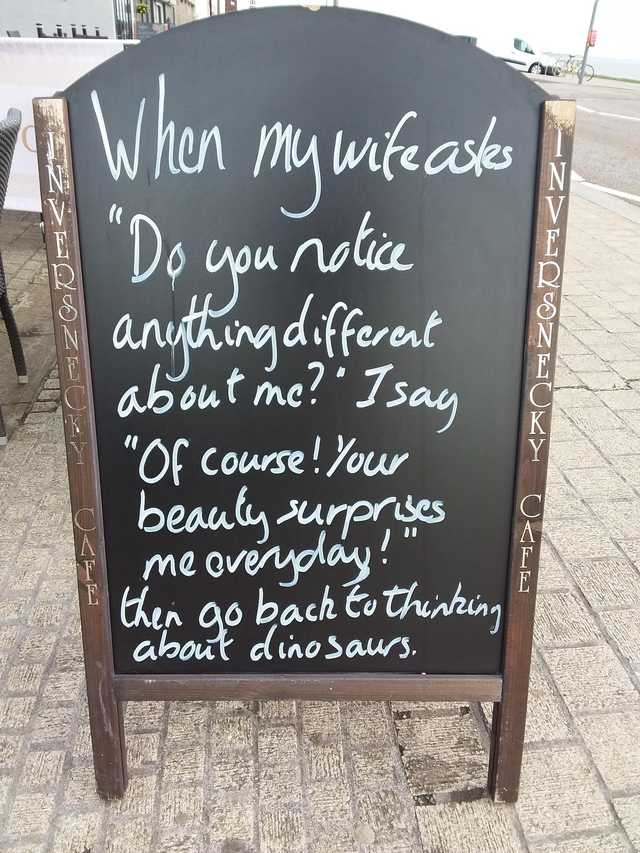 When my wife asks
"Do you notice
anything different
about me?" I say
"Of course! Your
beauty surprises
me everyday!"
then go back to thinking
about dinosaurs.
INVERSNECKY CAFE
INVERSNECKY CAFE